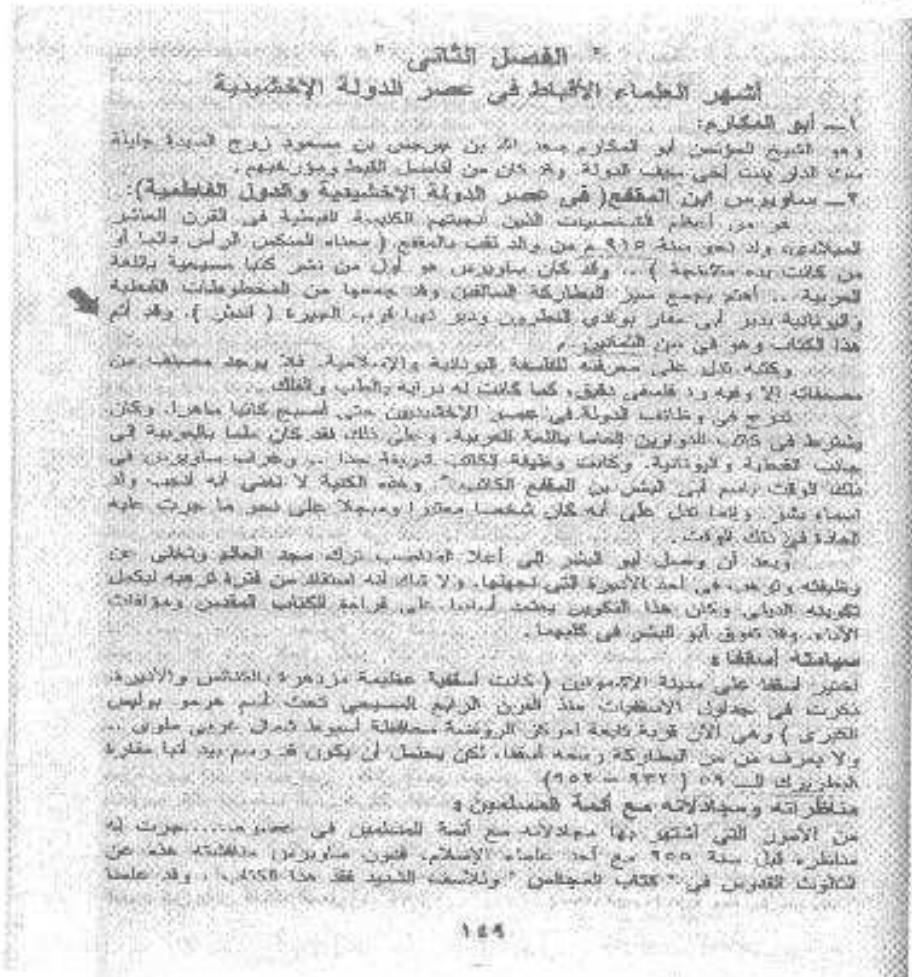 " الفصل الثانى "
أشهر العلماء الأقباط فى عصر الدولة الإخشيدية
١ـ أبو المكارم:
وهو الشيخ المؤتمن أبو المكارم سعد الله بن جرجس بن مسعود زوج السيدة جليلة
ست الدار بنت أخى سيف الدولة. وقد كان من أفاضل القبط ومؤرخيهم.
٢ـ ساويرس ابن المقفع( فى عصر الدولة الإخشيدية والدول الفاطمية):
هو من أعظم الشخصيات الذين أنجبتهم الكنيسة القبطية فى القرن العاشر
الميلادى، ولد نحو سنة ٩١٥ م من والد لقب بالمقفع ( معناه المنكس الرأس دائما أو
من كانت يده متشنجة ) ... وقد كان ساويرس هو أول من نشر كتبا مسيحية باللغة
العربية .. أهتم بجمع سير البطاركة السالفين وقد جمعها من المخطوطات القبطية
واليونانية بدير أبى مقار بوادى النطرون ودير نهيا قرب الجيزة ( اندثر ). وقد أتم
هذا الكتاب وهو فى سن الثمانين .
وكتبه تدل على معرفته للفلسفة اليونانية والإسلامية. فلا يوجد مصنف من
مصنفاته إلا وفيه رد فلسفى دقيق، كما كانت له دراية بالطب والفلك.
تدرج فى وظائف الدولة فى عصر الإخشيديين حتى أصبح كاتبا ماهرا. وكان
يشترط فى كاتب الدواوين إلماما باللغة العربية. وعلى ذلك فقد كان ملما بالعربية إلى
جانب القبطية واليونانية. وكانت وظيفة الكاتب شريفة جدا ... وعرف ساويرس فى
ذلك الوقت باسم أبى البشر بن المقفع الكاتب". وهذه الكنية لا تعنى أنه أنجب ولد
اسماه بشر. وإنما تدل على أنه كان شخصا معتبرا ومبجلا على نحو ما جرت عليه
العادة فى ذلك الوقت.
وبعد أن وصل أبو البشر إلى أعلا المناصب ترك مجد العالم وتخلى عن
وظيفته وترهب فى أحد الأديرة التى نجهلها. ولا شك أنه استفاد من فترة ترهبه ليكمل
تكوينه الدينى وكان هذا التكوين يعتمد أساسا على قراءة الكتاب المقدس ومؤلفات
الآباء. وقد تفوق أبو البشر فى كليهما.
سيامته أسقفا:
اختير اسقفا على مدينة الاشمونين ( كانت أسقفية عظيمة مزدهرة بالكنائس والأديرة،
ذكرت فى جداول الاسقفيات منذ القرن الرابع المسيحى تحت أسم هرمو بوليس
الكبرى ) وهى الآن قرية تابعة لمركز الروضة محافظة أسيوط شمال غربى ملوى ..
ولا يعرف من من البطاركة رسمه أسقفا، لكن يحتمل أن يكون قد رسم بيد أنبا مقارة
البطريرك الـ ٥٩ ( ٩٣٢ – ٩٥٢)
مناظراته ومجادلاته مع أئمة المسلمين:
من الأمور التى أشتهر بها مجادلاته مع أئمة المسلمين فى عصره.......جرت له
مناظره قبل سنة ٩٥٥ مع أحد علماء الإسلام. فدون ساويرس مناقشته هذه عن
الثالوث القدوس فى " كتاب المجالس " وللأسف الشديد فقد هذا الكتاب . وقد علمنا
١٤٩